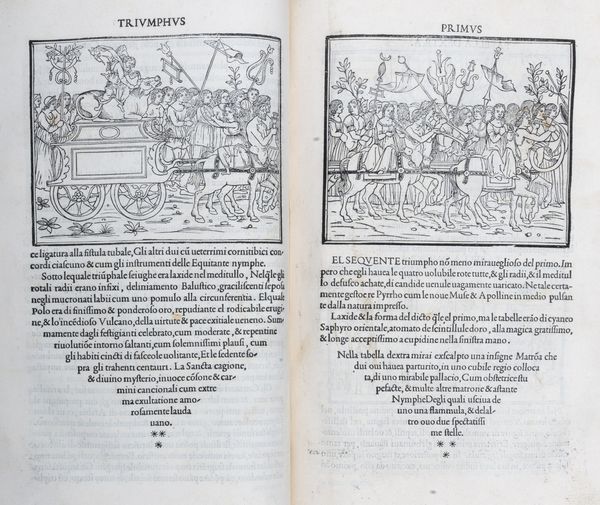 TRIVMPHVS
ce ligatura alla fistula tubale, Gli altri dui cū ueterrimi cornitibici con
cordi ciascuno & cum gli instrumenti delle Equitante nymphe.
Sotto lequale triūphale seiughe era laxide nel meditullo, Nelq̄le gli
rotali radii erano infixi, deliniamento Balustico, graciliscenti seposa
negli mucronati labii cum uno pomulo alla circunferentia. El quale
Polo era di finissimo & ponderoso oro, repudiante el rodicabile erugi-
ne, & lo'incēdioso Vulcano, della uirtute & pace exitiale ueneno. Sum-
mamente dagli festigianti celebrato, cum moderate, & repentine
riuolutiōe intorno saltanti, cum solemnissimi plausi, cum
gli habiti cincti di fasceole uolitante, Et le sedente so-
pra gli trahenti centauri. La Sancta cagione,
& diuino mysterio, inuoce cōsone & car-
mini cancionali cum extre
ma exultatione amo-
rosamente lauda
uano.
PRIMVS
EL SEQVENTE triumpho nō meno miraueglioso del primo. Im
pero che egli hauea le quatro uolubile rote tutte, & gli radii, & il meditul
lo defusco achate, di candide uenule uagamente uaricato. Ne tale certa-
mente gestoe re Pyrrho cum le noue Muse & Apolline in medio pulsan
te dalla natura impresso.
Laxide & la forma del dicto q̄le el primo, ma le tabelle erāo di cyaneo
Saphyro orientale, atomato de scintillule doro, alla magica gratissimo,
& longe acceptissimo a cupidine nella sinistra mano.
Nella tabella dextra mirai exscalpto una insigne Matrōa che
dui oui hauea parturito, in uno cubile regio colloca
ta, di uno mirabile pallacio, Cum obstetrice stu
pefacte, & multe altre matrone & astante
Nymphe Degli quali usciua de
uno una flammula, & delal-
tro ouo due spectatissi
me stelle.